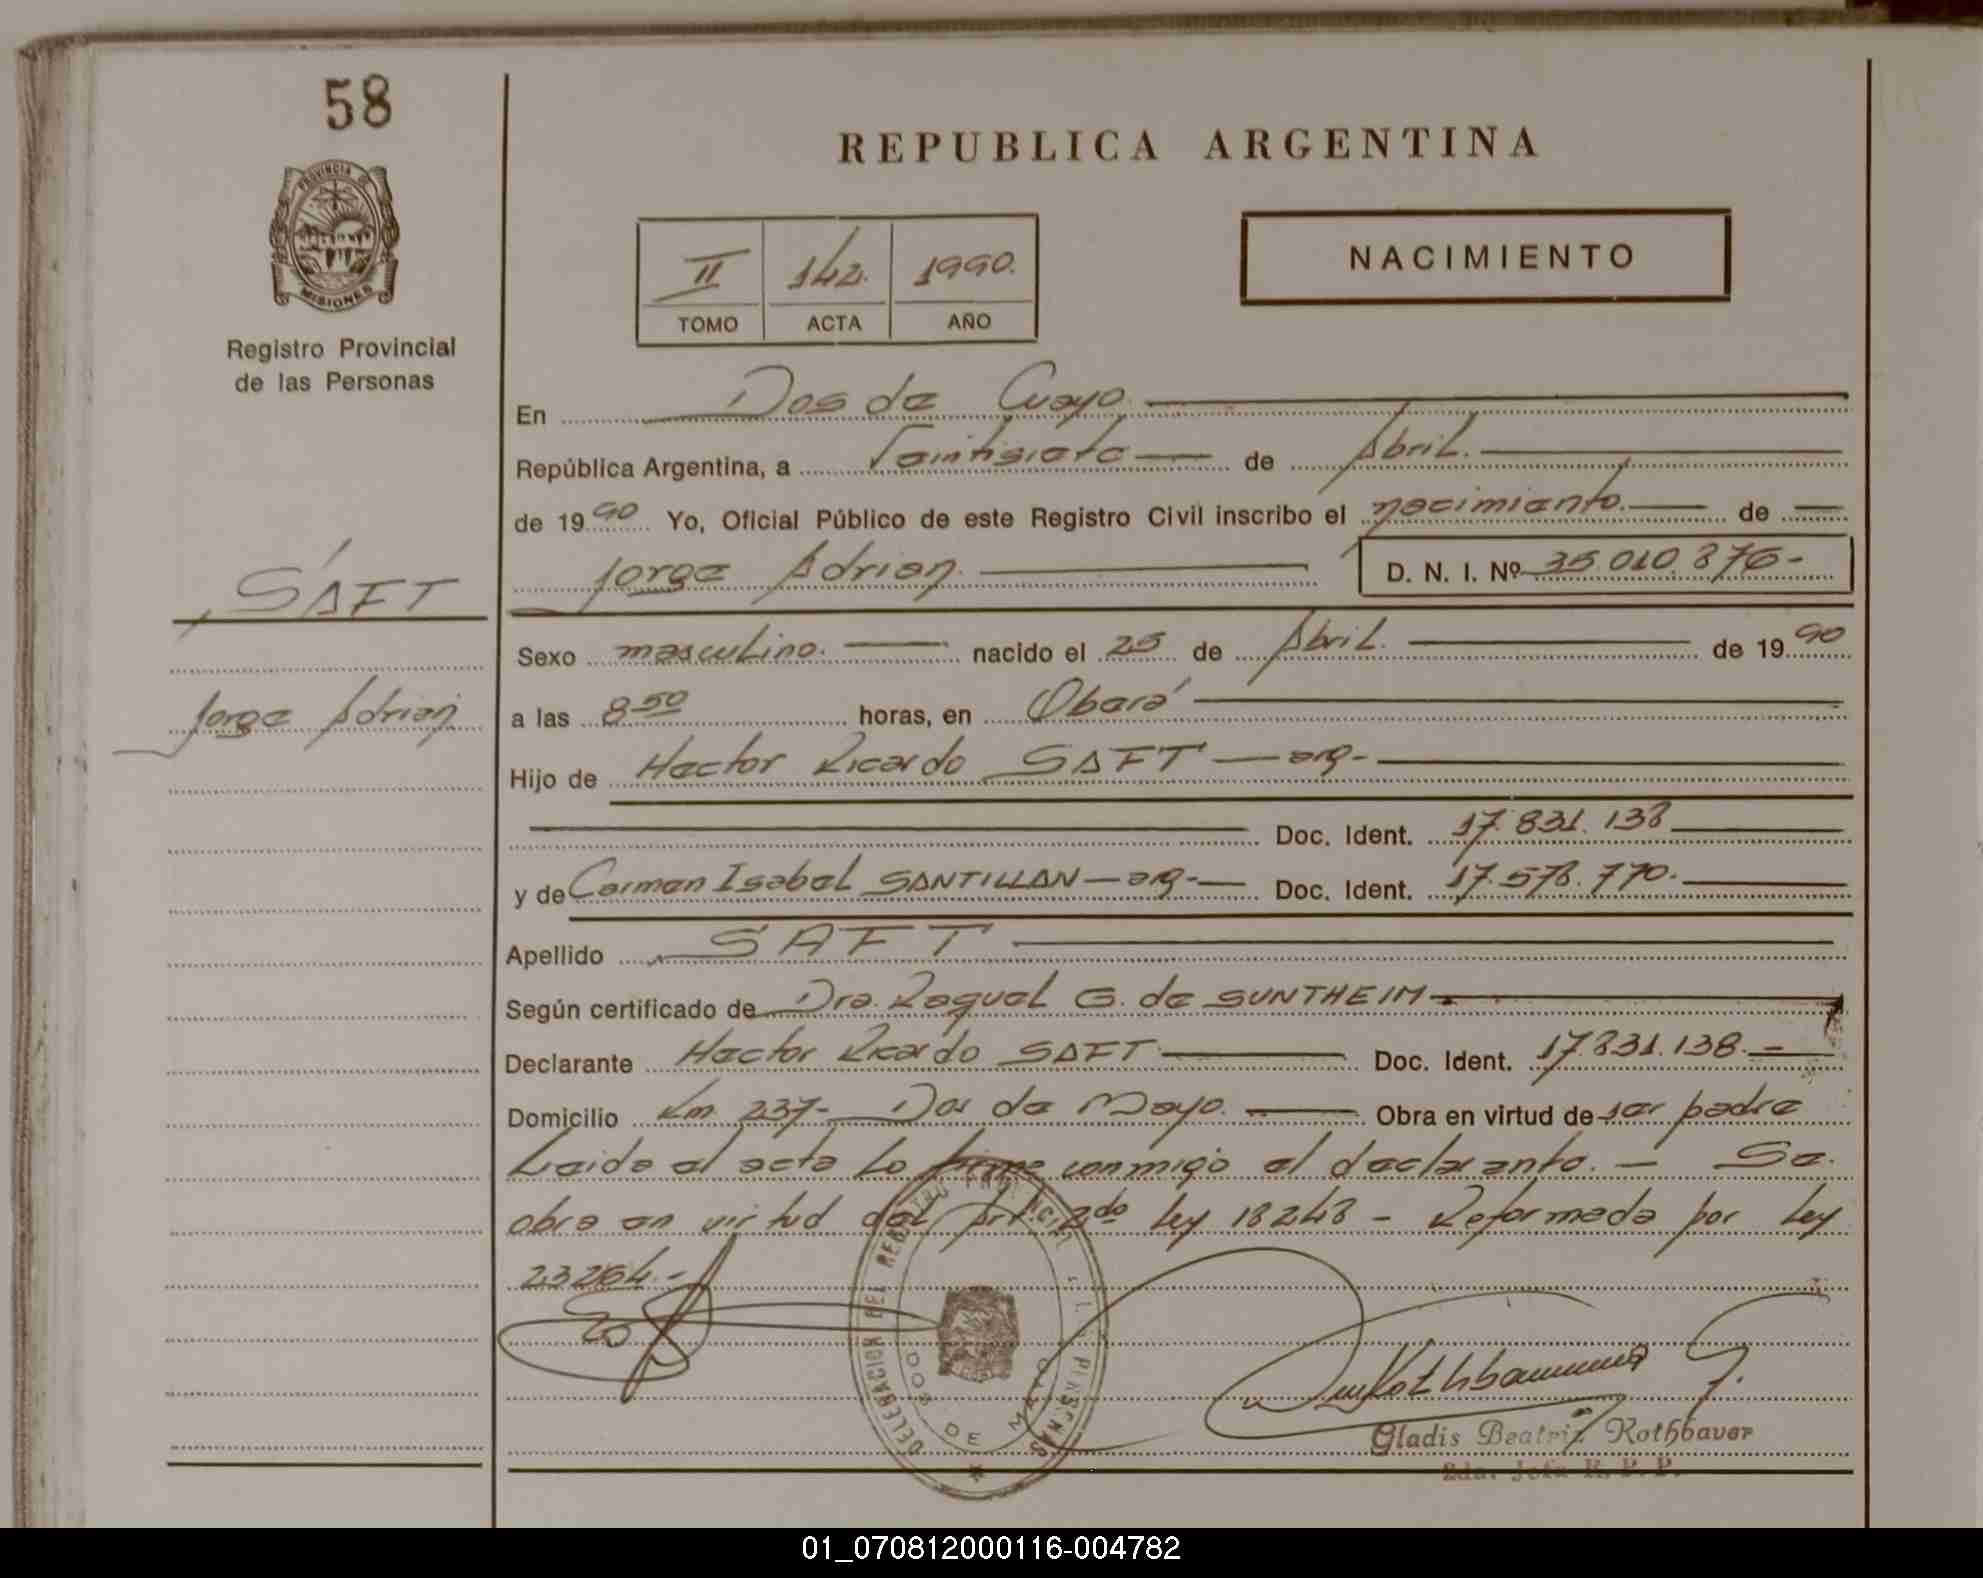 58
PROVINCIA DE
MISIONES
Registro Provincial
de las Personas
REPUBLICA ARGENTINA
II 142. 1990.
TOMO ACTA AÑO
NACIMIENTO
En Dos de Mayo
República Argentina, a Veintisiete de Abril.
de 1990 Yo, Oficial Público de este Registro Civil inscribo el nacimiento. de
Jorge Adrian. D. N. I. Nº 35.010.876-
SAFT
Jorge Adrian
Sexo masculino. nacido el 25 de Abril. de 1990
a las 8 50 horas, en Oberá
Hijo de Hector Ricardo SAFT - arg-
Doc. Ident. 17.831.138
y de Carmen Isabel SANTILLAN - arg- Doc. Ident. 17.578.770.
Apellido SAFT
Según certificado de Dra. Raquel G. de SUNTHEIM
Declarante Hector Ricardo SAFT Doc. Ident. 17.831.138.-
Domicilio Km. 237- Dos de Mayo. Obra en virtud de ser padre
Leida el acta lo firma conmigo el declarante. - Se
obra en virtud del Art. 2do Ley 18248 - Reformada por Ley
23264.-
DELEGACION DEL REGISTRO PROVINCIAL DE LAS PERSONAS
DOS DE MAYO
Gladis Beatriz Rothbauer
2da. Jefa R. P. P.
01_070812000116-004782